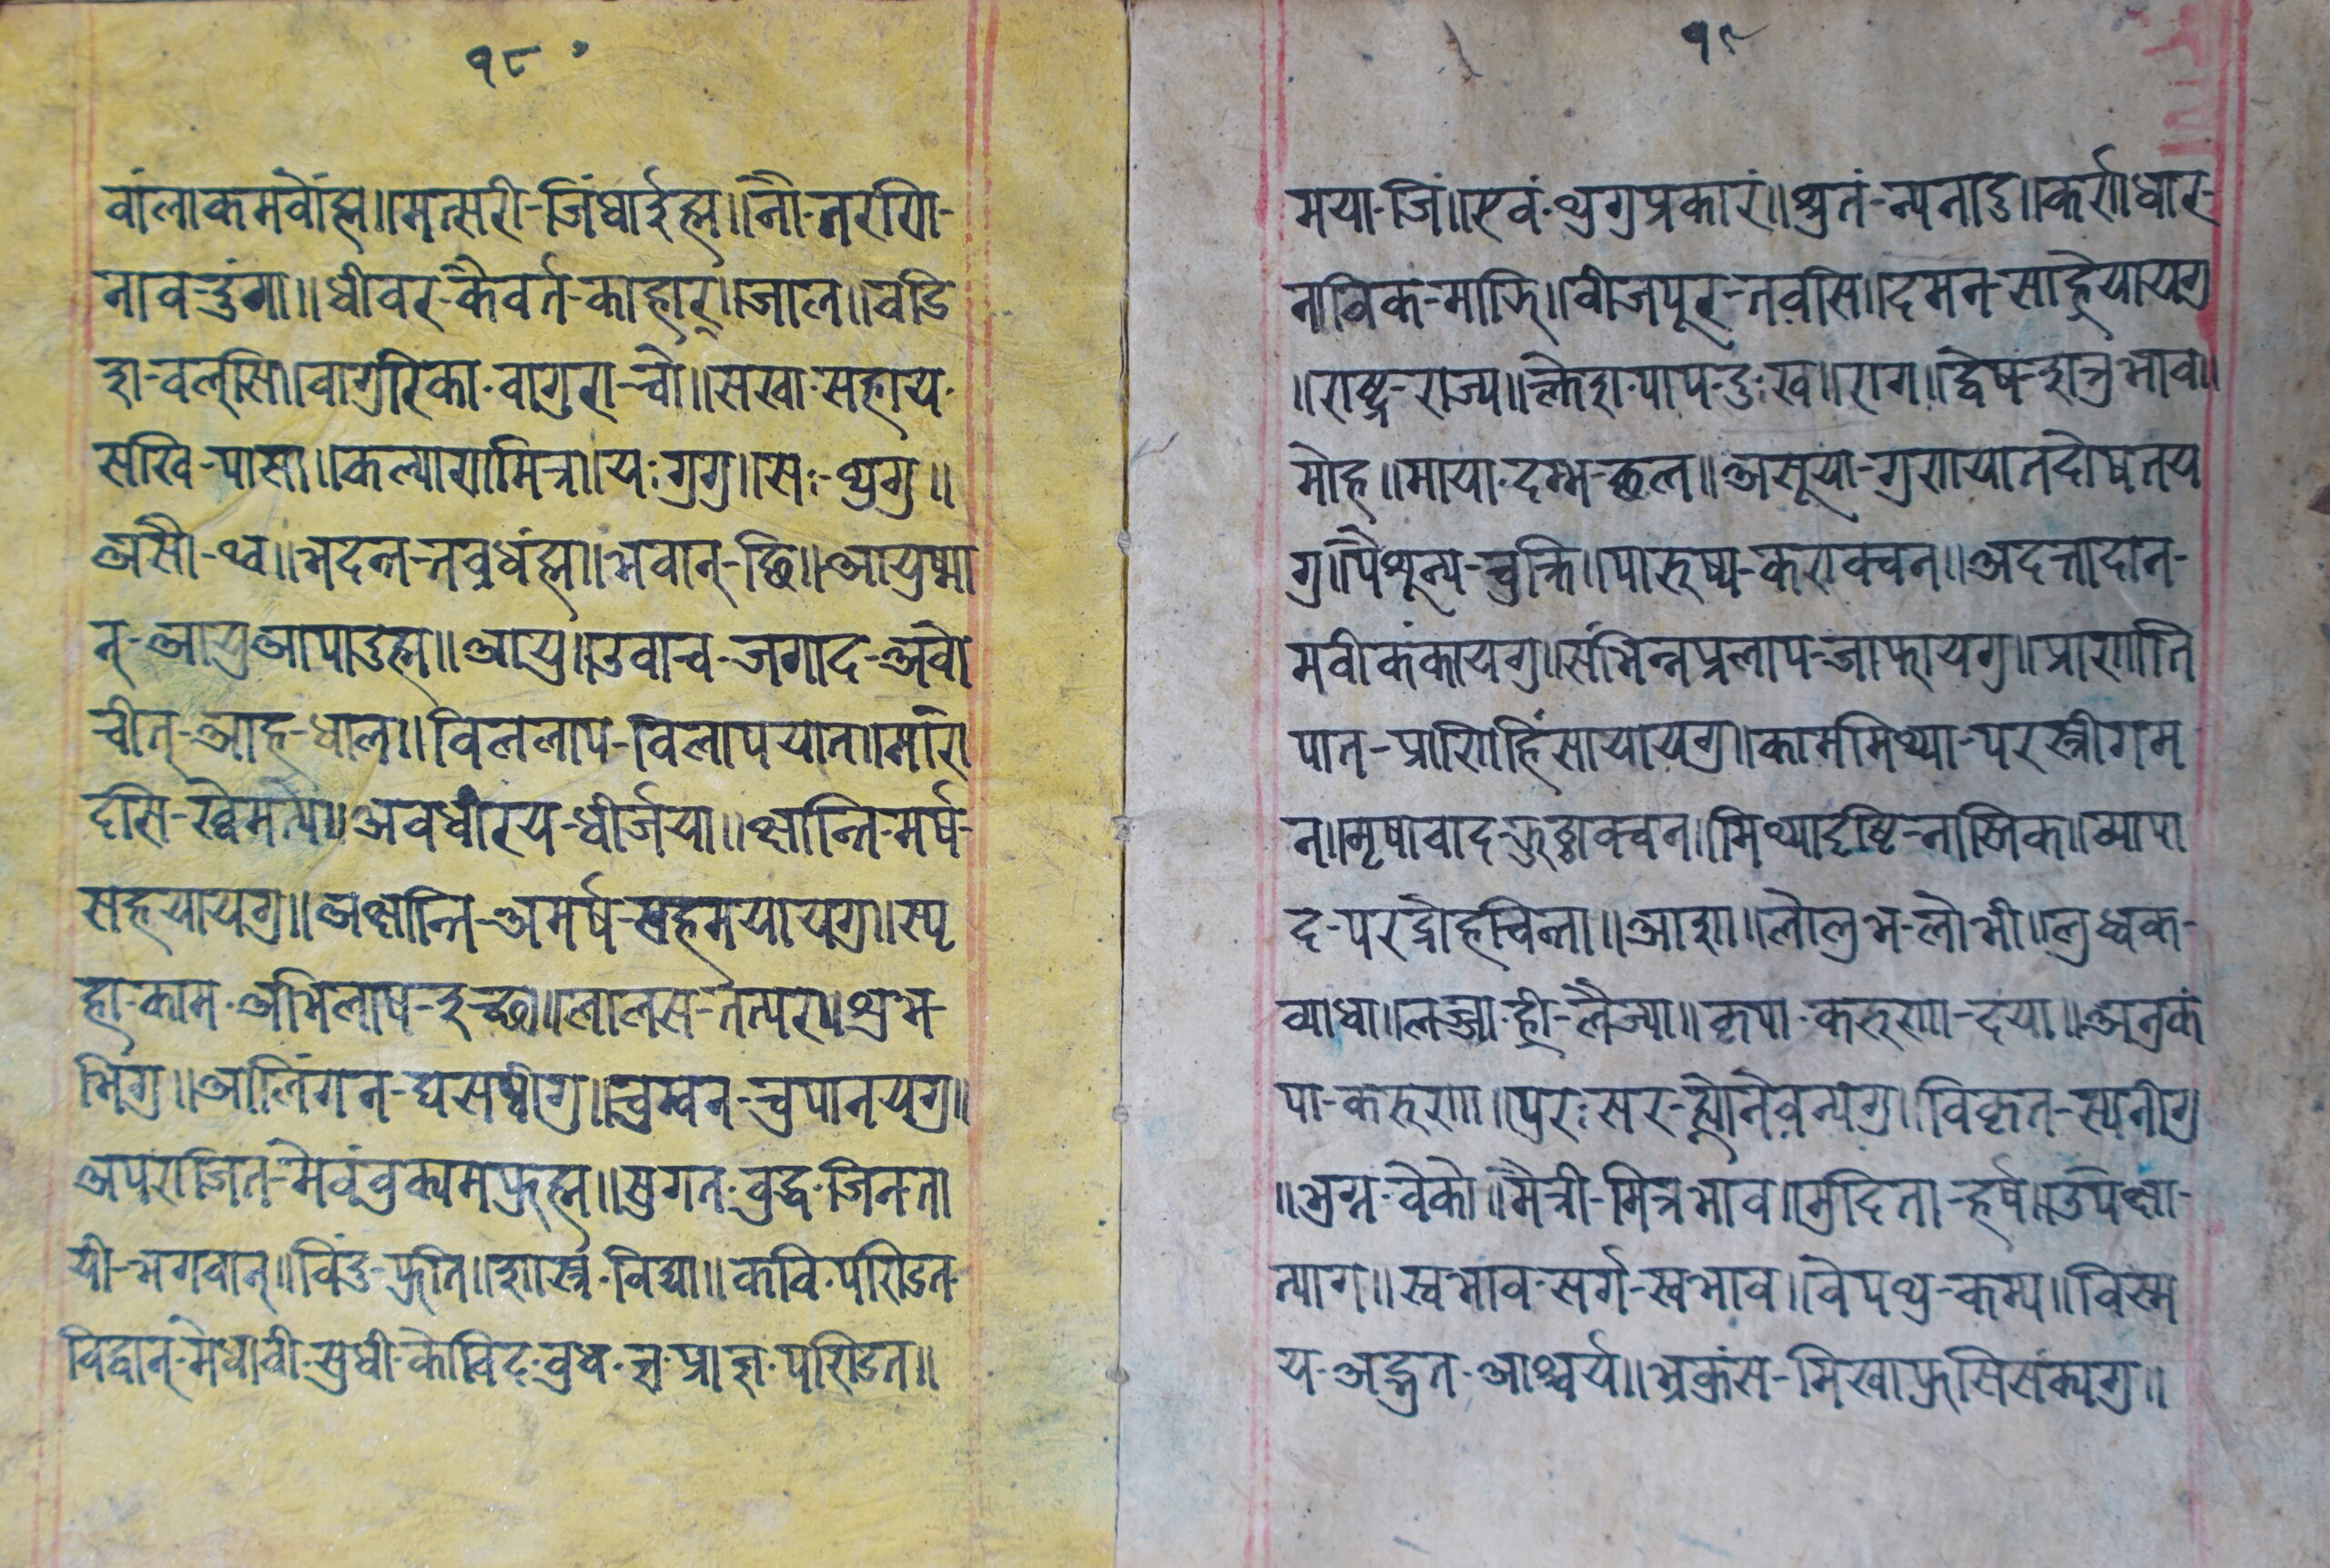 १८
वांलाकमवोंह्म॥मत्सरी-जिंधार्इह्म॥नौ-तरणि-
नाव-डुंगा॥धीवर-कैवर्त-काहार्॥जाल॥वडि
श-वल्सि॥वागुरिका-वागुरा-चो॥सखा-सहाय-
सखि-पासा॥कल्याणमित्र॥यः गुगु॥सः-थुगु॥
असौ-थ्व॥भदन्त-नवधंह्म॥भवान्-छि॥आयुष्मा
न्-आयुआपाडह्म॥आयु॥उवाच-जगाद-अवो
चीत्-आह-धाल॥विललाप-विलापयात॥
अवधीरय-धीर्जया॥क्षान्ति-मर्ष-
सहयायगु॥अक्षान्ति-अमर्ष-सहमयायगु॥स्पृ
हा-काम-अभिलाष-इच्छा॥लालस-तत्पर॥
आलिंगन-घसपुीगु॥चुम्बन-चुपानयगु॥
अपराजित-मेवंवुक्यमफुह्म॥सुगत-वुद्ध-जिन-ता
यी-भगवान्॥विंडु-फुति॥शास्त्र-विद्या॥कवि-पण्डित-
विद्वान्-मेधावी-सुधी-कोविद-वुध-ज्ञ-प्राज्ञ-पण्डित॥
१९
मया-जिं॥एवं-थुगुप्रकारं॥श्रुतं-न्यनाडु॥कर्णधार-
नाविक-माझि॥वीजपूर-तवसि॥दमन-साह्रेयायगु
॥राष्ट्र-राज्य॥क्लेश-पाप-दुःख॥राग॥द्वेष-शत्रुभाव॥
मोह॥माया-दम्भ-छल॥असूया-गुणयातदोषतय
गु॥पैशून्य-चुक्ति॥पारुष्य-कराक्वचन॥अदत्तादान-
मवीकंकायगु॥संभिन्नप्रलाप-ज्राफायगु॥प्राणाति
पात-प्राणिहिंसायायगु॥काममिथ्या-परस्त्रीगम
न॥मृषावाद-झुठ्ठाक्वचन॥मिथ्यादृष्टि-नास्तिक॥व्यापा
द-परद्रोहचिन्ता॥आशा॥लोलुभ-लोभी॥लुध्धक-
व्याधा॥लज्जा-ह्री-लैज्या॥कृपा-करुणा-दया॥अनुकं
पा-करुणा॥पुरःसर-ह्योनेवन्यगु॥विकृत-स्यनीगु
॥भग्न-वेको॥मैत्री-मित्रभाव॥मुदिता-हर्ष॥उपेक्षा-
त्याग॥स्वभाव-सर्ग-स्वभाव॥वेपथु-कम्प॥विस्म
य-अद्भुत-आश्चर्य॥भ्रकंस-मिखाफुसिसंक्यगु॥